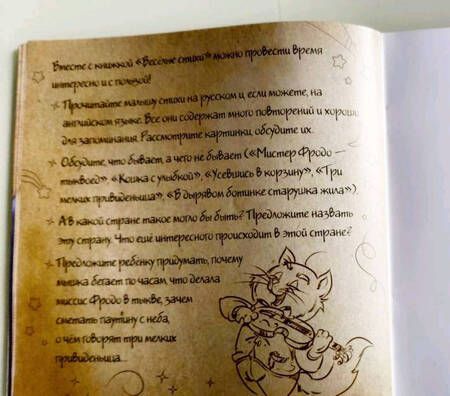 Вместе с книжкой «Весёлые стихи» можно провести время
интересно и с пользой!
Прочитайте малышу стихи на русском и, если можете, на
английском языке. Все они содержат много повторений и хороши
для запоминания. Рассмотрите картинки, обсудите их.
Обсудите, что бывает, а чего не бывает («Мистер Фродо —
тыквоед» «Кошка с улыбкой», «Усевшись в корзину», «Три
мелких привиденьица», «В дырявом ботинке старушка жила»)
А в какой стране такое могло бы быть? Предложите назвать
эту страну. Что ещё интересного происходит в этой стране?
Предложите ребёнку придумать, почему
мышка бегает по часам, что делала
миссис Фродо в тыкве, зачем
сметать паутину с неба,
о чём говорят три мелких
привиденьица...